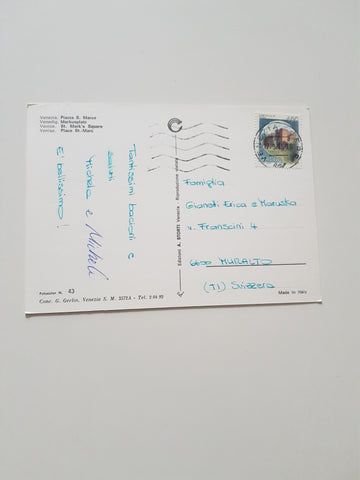 Venezia Piazza S. Marco
Venedig Markusplatz
Venice St. Mark's Square
Venise Place St-Marc
Tantissimi bacioni e
saluti
Michela e Michele
E' bellissimo!
Fotocolor N. 43
Com. G. Gerlin, Venezia S. M. 3572A - Tel. 2 04 92
Edizioni A. STORTI Venezia - Riproduzione vietata
Famiglia
Gianoti Erica e Maruska
v. Franscini 4
6600 MURALTO
(TI) Svizzera
Made in Italy